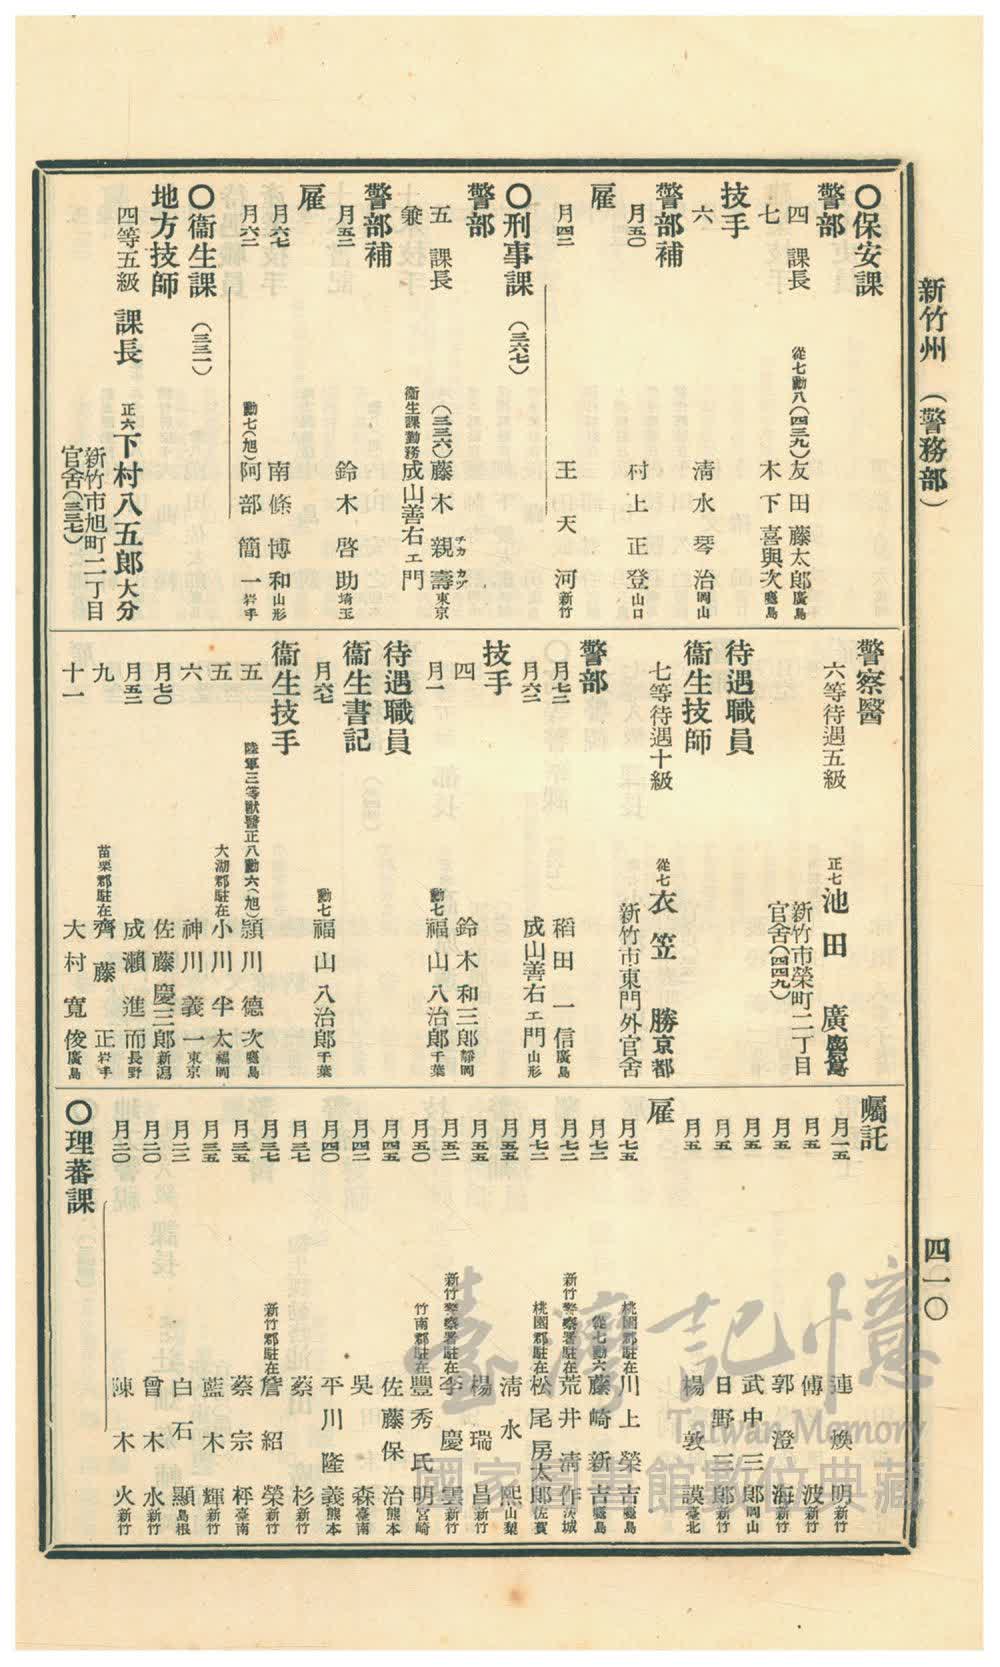 新竹州 （警務部）
四一〇
〇保安課
警部
四 課長 從七勳八（四三九）友田藤太郎 廣島
七 木下喜與次 廣島
技手
六 清水琴治 岡山
警部補
月五〇 村上正登 山口
雇
月四二 王天河 新竹
〇刑事課 （三六七）
警部
五 課長 （三三六）藤木親壽 チカ カヅ 東京
兼 衞生課勤務 成山善右エ門
警部補
月五二 鈴木啓助 埼玉
雇
月六七 南條博和 山形
月六二 勳七（旭）阿部簡一 岩手
〇衞生課 （三三一）
地方技師
四等五級 課長 正六 下村八五郎 大分
新竹市旭町二丁目
官舍（三三七）
警察醫
六等待遇五級 正七 池田廣 鹿兒島
新竹市榮町二丁目
官舍（四四九）
待遇職員
衞生技師
七等待遇十級 從七 衣笠勝 京都
新竹市東門外官舍
警部
月七二 稻田一信 廣島
月六二 成山善右エ門 山形
技手
四 鈴木和三郎 靜岡
月一 勳七 福山八治郎 千葉
待遇職員
衞生書記
月六七 勳七 福山八治郎 千葉
衞生技手
五 陸軍三等獸醫正八勳六（旭）頴川德次
五 大湖郡駐在 小川半太 福岡
六 神川義一 東京
月七〇 佐藤慶三郎 新潟
月五二 成瀨進而 長野
九 苗栗郡駐在 齊藤正 岩手
十一 大村寬俊 廣島
囑託
月一五 連煥明 新竹
月五 傅波 新竹
月五 郭澄海 新竹
月五 武中三郎 岡山
月五 日野三郎 新竹
月五 楊敦謨 臺北
雇
月七五 桃園郡駐在 川上榮吉
月七二 從七勳六 藤崎新吉
月七二 新竹警察署駐在 荒井淸作 茨城
月七二 桃園郡駐在 松尾房太郎 佐賀
月五五 淸水熙 山梨
月五五 楊瑞昌 新竹
月五二 新竹警察署駐在 李慶雲 新竹
月五〇 竹南郡駐在 豐秀氏明 宮崎
月四五 佐藤保治 熊本
月四二 吳森 臺南
月四〇 平川隆義 熊本
月三七 蔡杉 新竹
月三七 新竹郡駐在 詹紹榮 新竹
月三五 蔡宗枰 臺南
月三五 藍木輝 新竹
月三二 白石顯 島根
月二〇 曾木水 新竹
月二〇 陳木火 新竹
〇理蕃課
臺灣記憶
Taiwan Memory
國家圖書館數位典藏